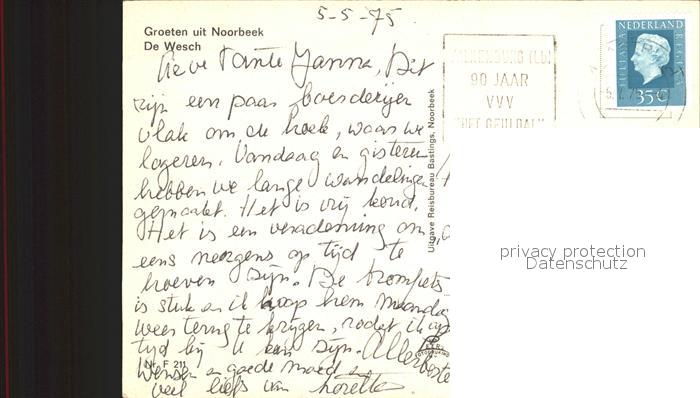 5-5-75
Groeten uit Noorbeek
De Wesch
Lieve Tante Janna, Dit
zijn een paar boerderijen
vlak om de hoek, waar we
logeren. Vandaag en gisteren
hebben we lange wandelingen
gemaakt. Het is vrij koud.
Het is een verademing om
eens nergens op tijd te
hoeven zijn. De trompet
is stuk en ik hoop hem maanda
weer terug te krijgen, zodat ik op
tijd bij U kan zijn. Allerbeste
Nr. F 211
wensen en goede moed en
veel liefs van Lorette
Uitgave Reisbureau Bastings, Noorbeek
VALKENBURG (Lb)
90 JAAR
VVV
"HET GEULDAL"
NEDERLAND
JULIANA REGINA
35 C
privacy protection
Datenschutz